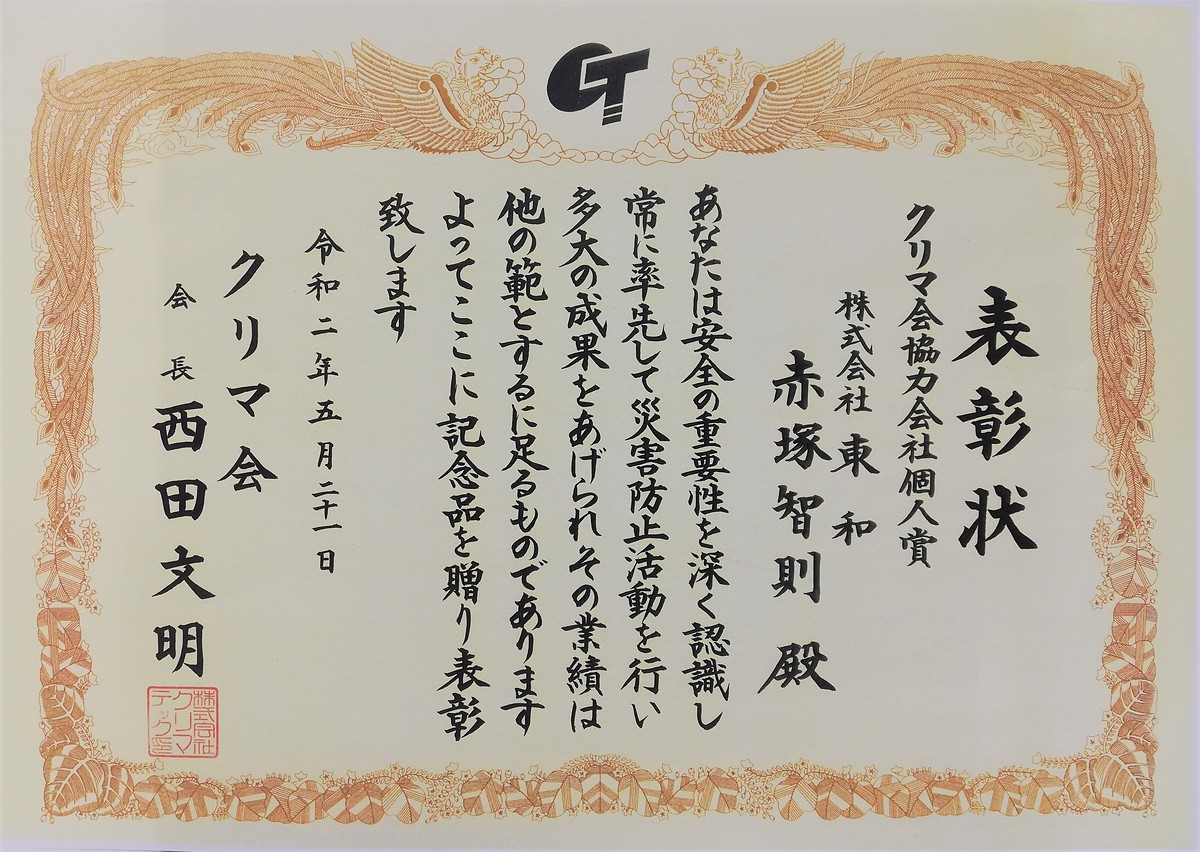 GT
表彰状
クリマ会協力会社個人賞
株式会社 東和
赤塚智則 殿
あなたは安全の重要性を深く認識し
常に率先して災害防止活動を行い
多大の成果をあげられその業績は
他の範とするに足るものであります
よってここに記念品を贈り表彰
致します
令和二年五月二十一日
クリマ会
会長 西田文明
株式会社
クリマ
テック印